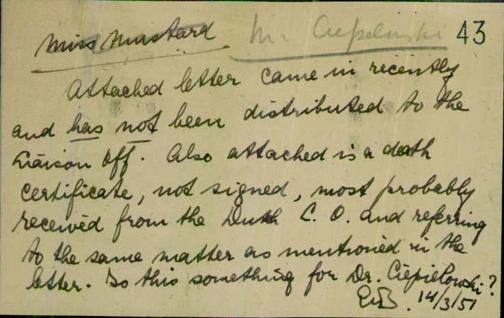 Miss Mustard Mr 43
Attached letter came in recently
and has not been distributed to the
Liaison Off. Also attached is a death
certificate, not signed, most probably
received from the Dutch L. O. and referring
to the same matter as mentioned in the
letter. Is this something for Dr. Ciepielowski?
14/3/51